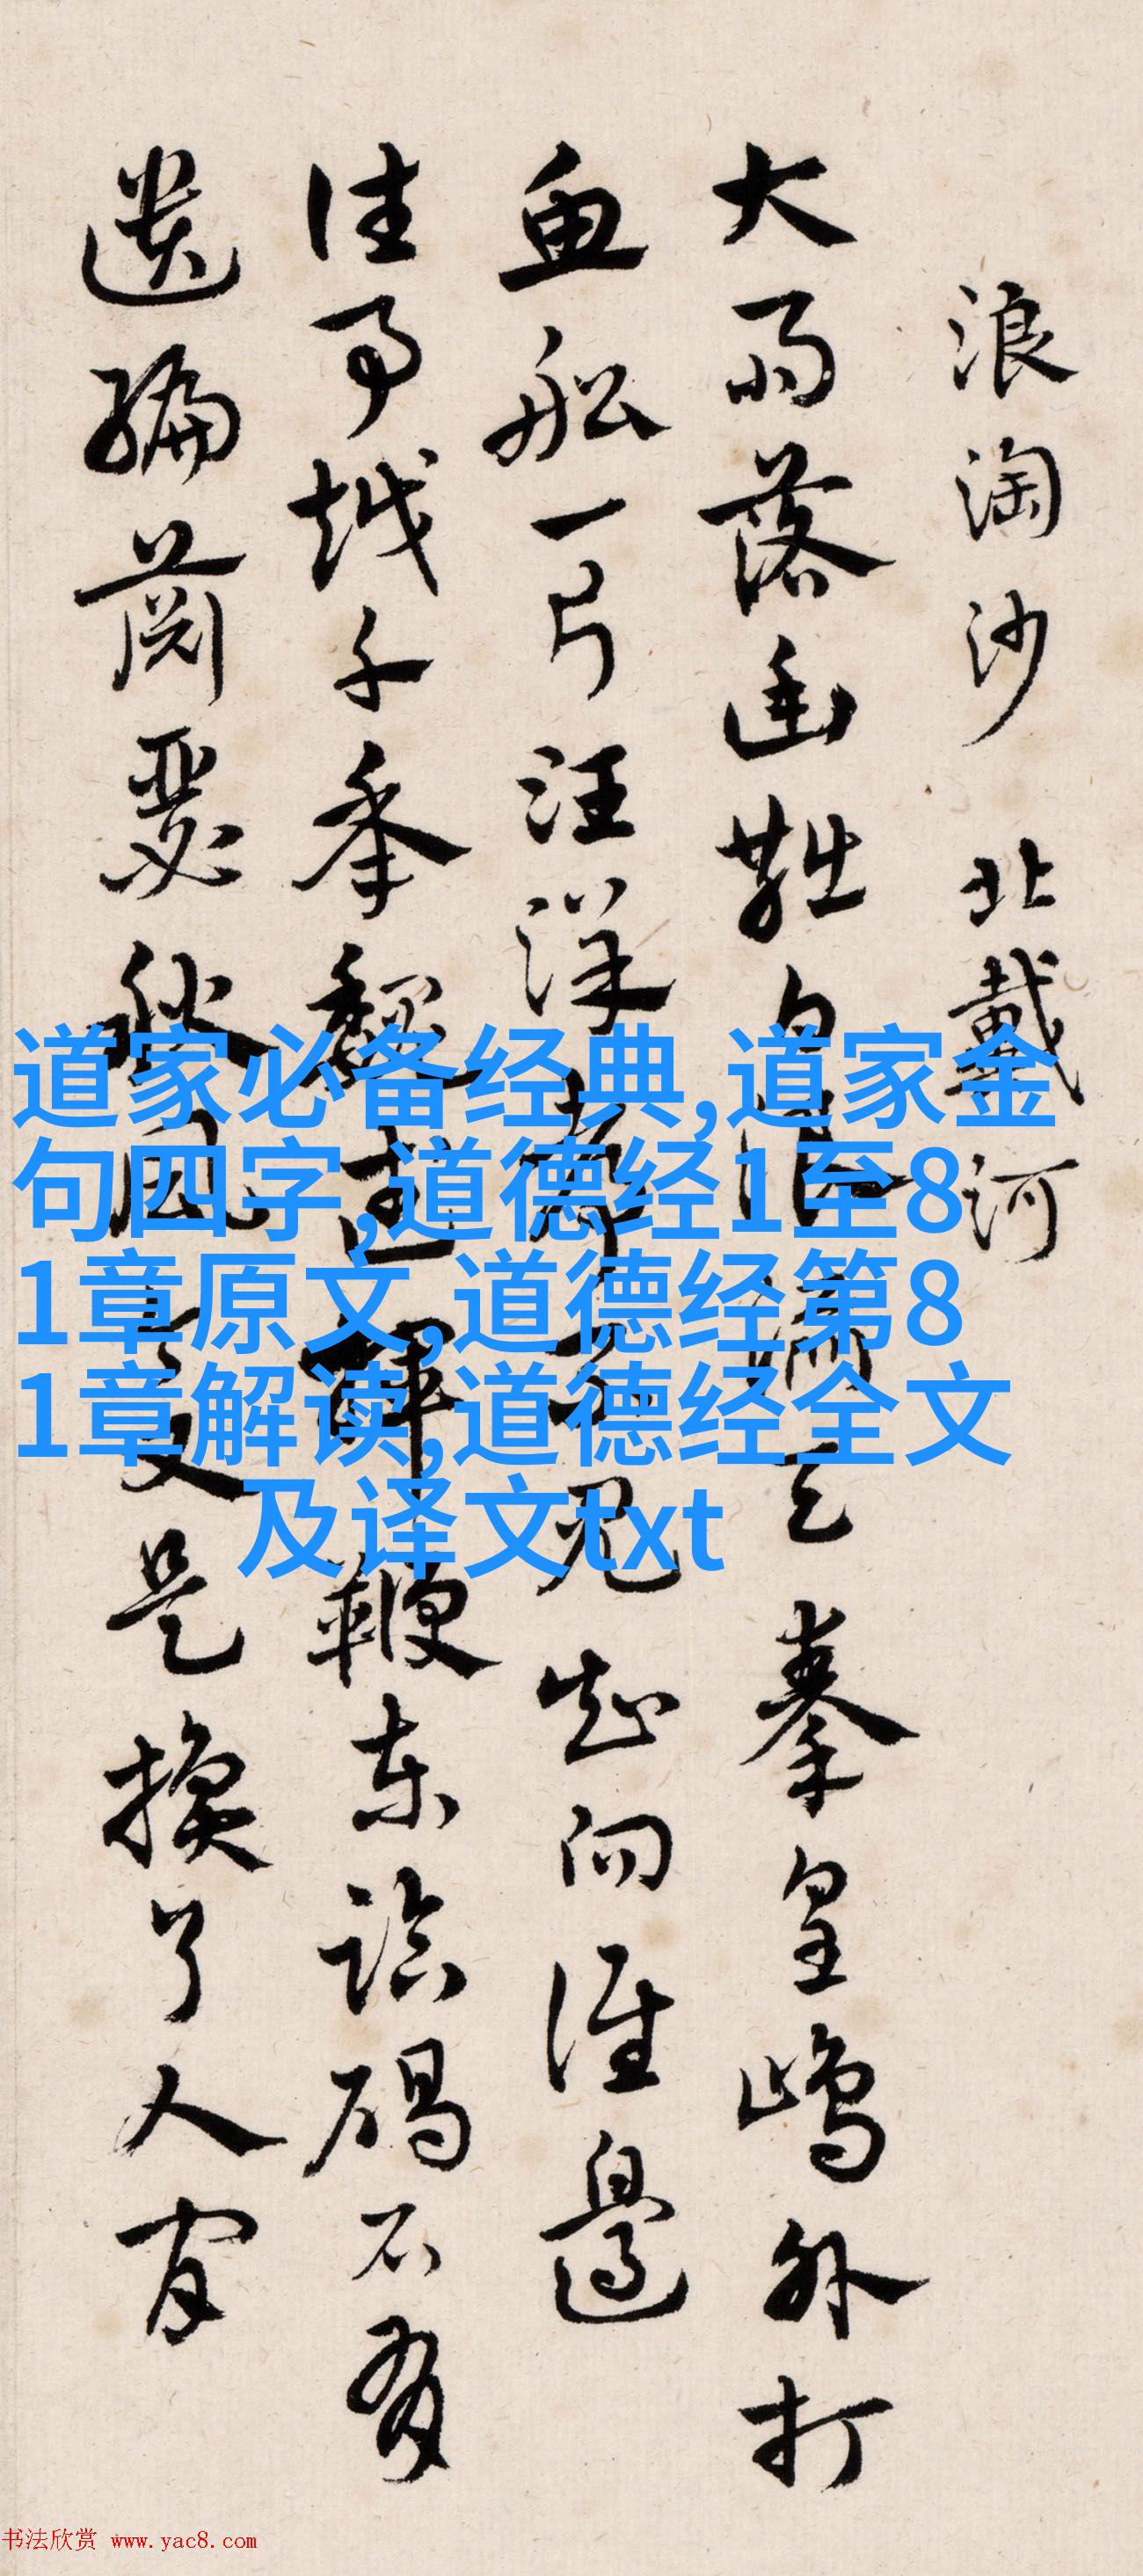 浪淘沙 北戴河
大雨落幽燕白浪滔天秦皇島外打
魚船一片汪洋都不見知向誰邊
往事越千年魏武揮鞭東臨碣石有
遺編蕭瑟秋風今又是換了人間
道家必备经典,道家金
句四字,道德经1至8
1章原文,道德经第8
1章解读,道德经全文
及译文txt
书法欣赏 www.yac8.com